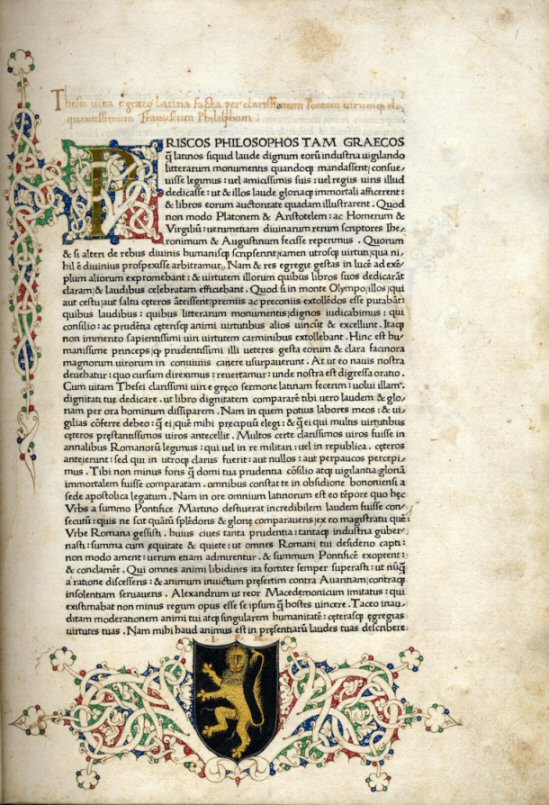 Thesei uita e græco latina facta per clarissimum Poetam uirumq; elo,
quentissimum Franciscum Philelphum.
PRISCOS PHILOSOPHOS TAM GRAECOS
q̃ latinos siquid laude dignum eorũ industria uigilando
litterarum monumentis quandoq; mandassent; consue
uisse legimus: uel amicissimis suis: uel regiis uiris illud
dedicasse: ut & illos laude gloriaq; immortali afficerent:
& libros eorum auctoritate quadam illustrarent. Quod
non modo Platonem & Aristotelem: ac Homerum &
Virgiliũ: uerumetiam diuinarum rerum scriptores Ihe,
ronimum & Augustinum fecisse reperimus. Quorum
& si alteri de rebus diuinis humanisq; scripserint; eamen utrosq; uirtuti; qua ni,
hil ẽ diuinius prospexisse arbitramur. Nam & res egregie gestas in lucẽ ad exẽ,
plum aliorum expromebant: & uirtutem illorum quibus libros suos dedicarãt
claram; & laudibus celebratam efficiebant. Quod si in monte Olympo; illos; qui
aut cestu; aut saltu cęteros ãteissent; premiis ac preconiis extollẽdos esse putabãt:
quibus laudibus: quibus litterarum monumentis; dignos iudicabimus: qui
consilio: ac prudẽtia cęterisq; animi uirtutibus alios uincũt & excellunt. Itaq;
non immerito sapientissimi uiri uirtutem carminibus extollebant. Hinc est hu,
manissime princeps; q prudentissimi illi ueteres gesta eorum & clara facinora
magnorum uirorum in conuiuiis canere usurpauerunt. At ut eo nauis nostra
deuehatur: quo cursum direximus: reuertamur: unde nostra est digressa oratio.
Cum uitam Thesei clarissimi uiri e gręco sermone latinam fecerim: uolui illam
dignitati tuę dedicare. ut libro dignitatem compararẽ tibi uero laudem & glo,
riam per ora hominum dissiparem. Nam in quem potius labores meos: & ui,
gilias cõferre debeo: q̃ ei; quẽ mihi precipuũ elegi: & q̃ ei qui multis uirtutibus
cęteros pręstantissimos uiros antecellit. Multos certe clarissimos uiros fuisse in
annalibus Romanorũ legimus: qui uel in re militari: uel in republica. cęteros
anteierunt: sed qui in utroq; clarus fuerit: aut nullos: aut perpaucos percepi,
mus. Tibi non minus fons q̃ domi tua prudentia cõsilio atq; uigilantia; gloriã
immortalem fuisse comparatam. omnibus constat te in obsidione bononiensi a
sede apostolica legatum. Nam in ore omnium latinorum est eo tẽpore quo hęc
Vrbs a summo Pontifice Martino destuerat incredibilem laudem fuisse con,
secutũ: quis ne scit quãtũ splẽdoris & glorię comparaueris; ex eo magistratu quẽ
Vrbe Romana gessisti. huius ciues tanta prudentia: tantaq; industria guber,
nasti: summa cum equitate & quiete: ut omnes Romani tui desiderio capti:
non modo ament: uerum etiam admirentur. & summum Pontificẽ exoptent:
& conclamẽt. Qui omnes animi libidines ita fortiter semper superasti: ut nũq̃
a ratione discesseris: & animum inuictum presertim contra Auaritiam; contraq;
insolentiam seruaueris. Alexandrum ut reor Macedemonicum imitatus: qui
existimabat non minus regum opus esse se ipsum q̃ hostes uincere. Taceo inau,
ditam moderationem animi tui atq; singularem humanitatẽ: cęterasq; egregias
uirtutes tuas. Nam mihi haud animus est in presentiarũ laudes tuas describere